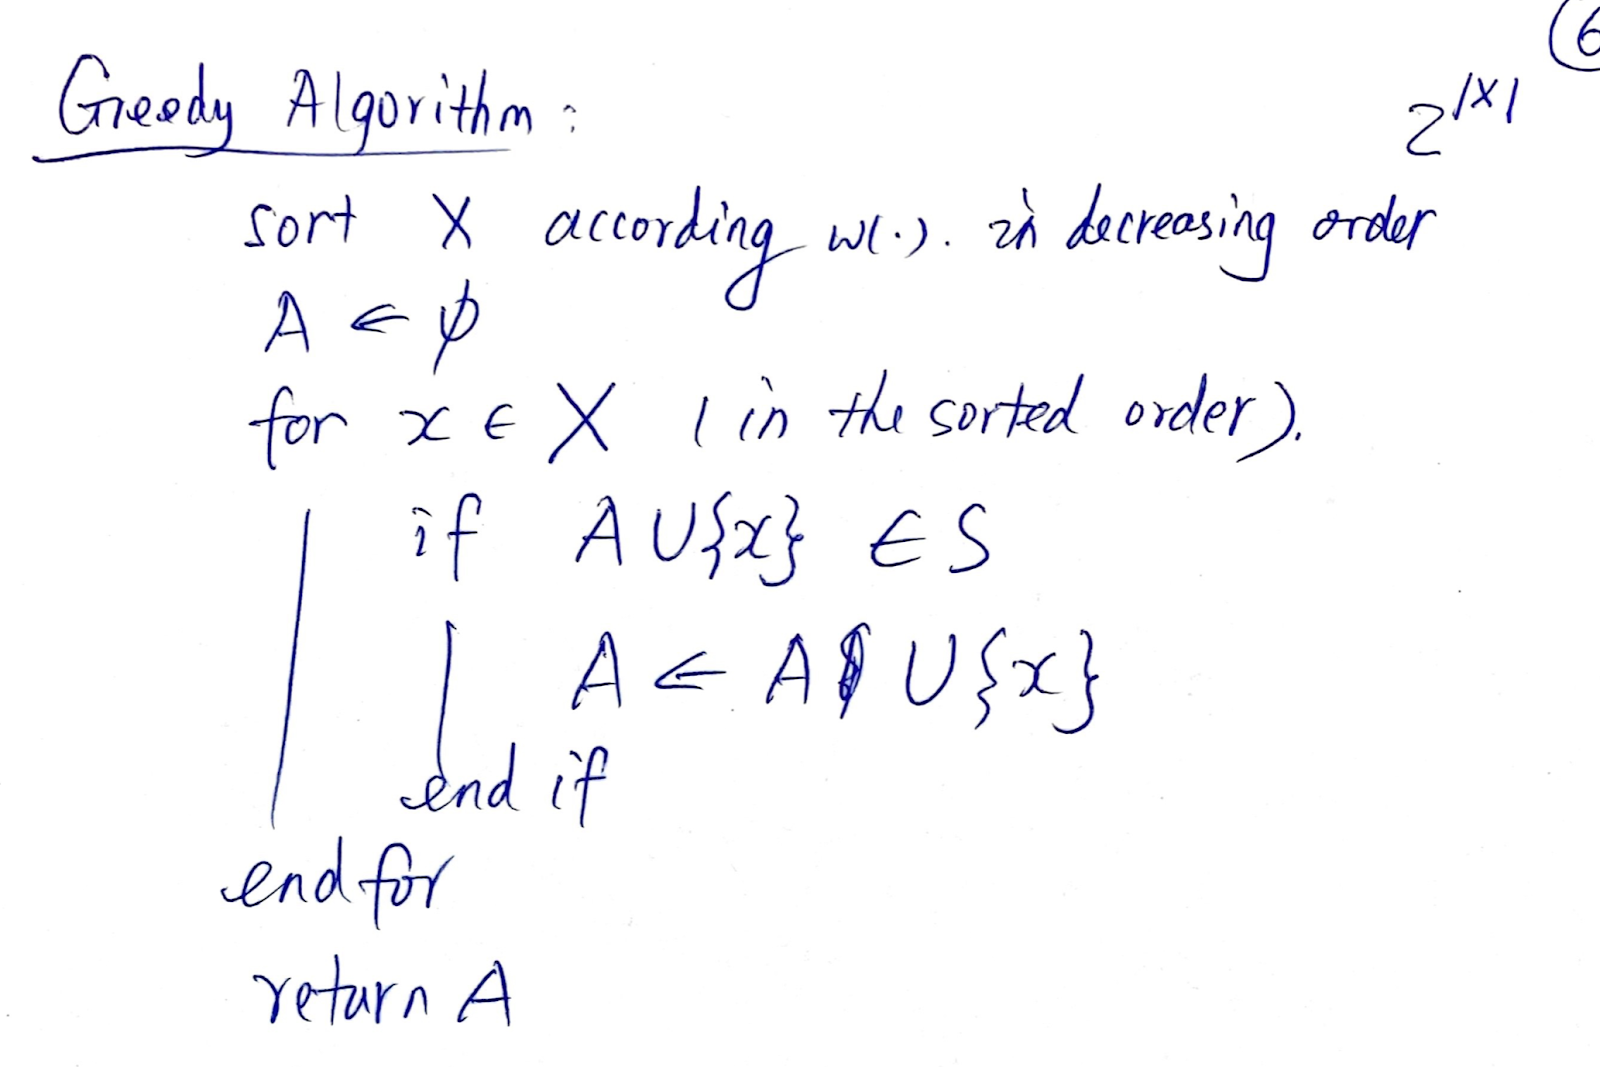 6
Greedy Algorithm:
2^|X|
sort X according w(·). in decreasing order
A ← ϕ
for x ∈ X (in the sorted order).
if A ∪ {x} ∈ S
A ← A ∪ {x}
end if
end for
return A